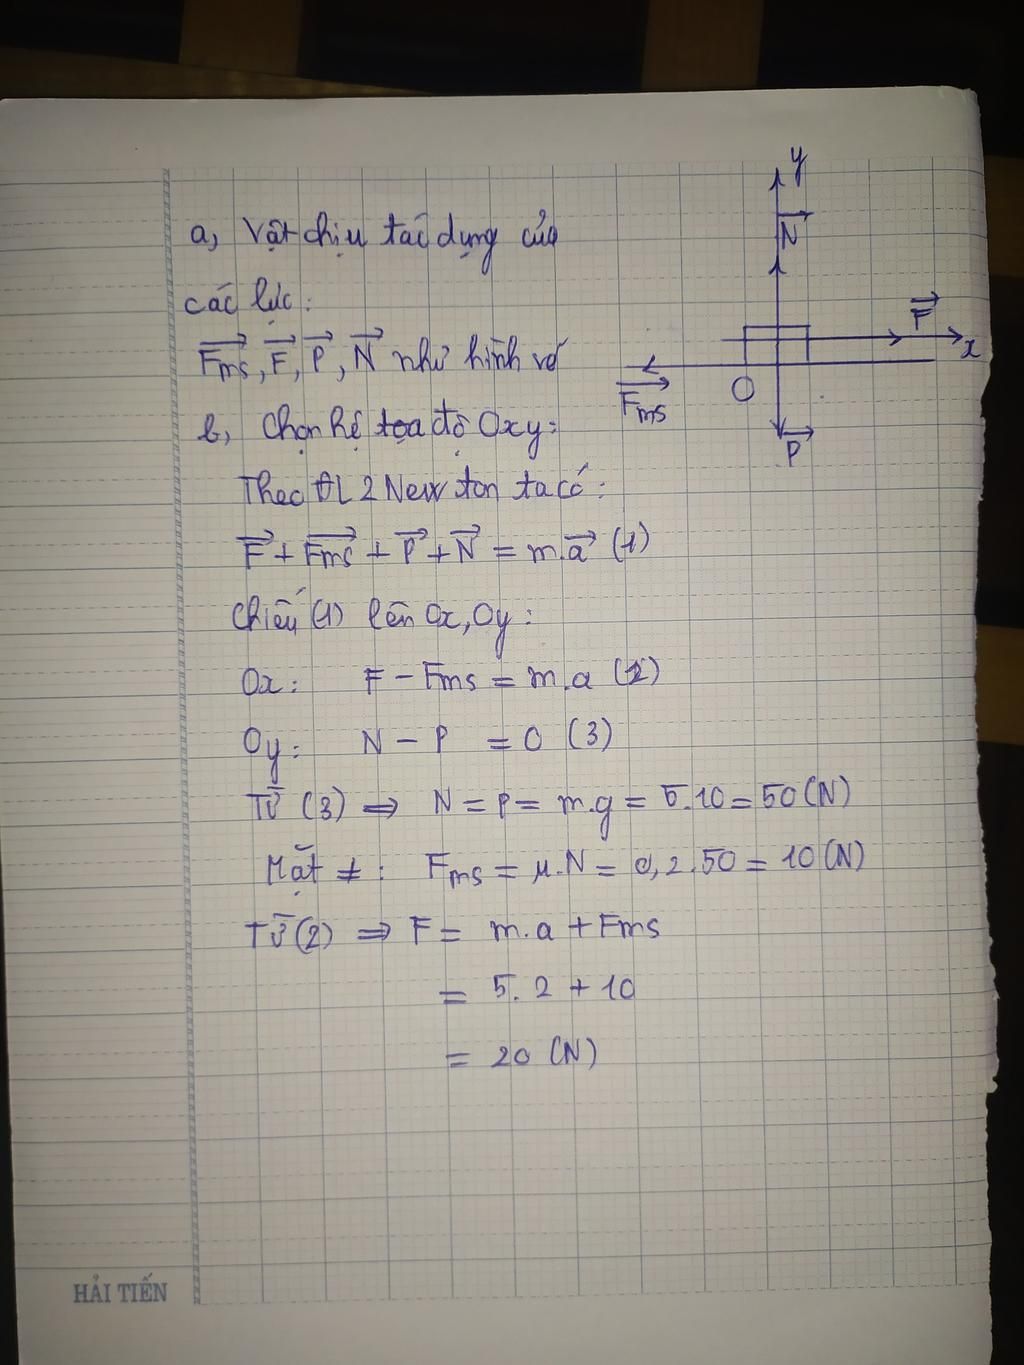 a, Vật chịu tác dụng của
các lực:
Fms, F, P, N như hình vẽ
y
N
F
x
O
Fms
P
b, Chọn hệ tọa độ Oxy:
Theo ĐL 2 Newton ta có:
F + Fms + P + N = m.a (1)
Chiếu (1) lên Ox, Oy:
Ox: F - Fms = m.a (2)
Oy: N - P = 0 (3)
Từ (3) ⇒ N = P = m.g = 5.10 = 50 (N)
Mặt ≠: Fms = μ.N = 0,2.50 = 10 (N)
Từ (2) ⇒ F = m.a + Fms
= 5.2 + 10
= 20 (N)
HẢI TIẾN